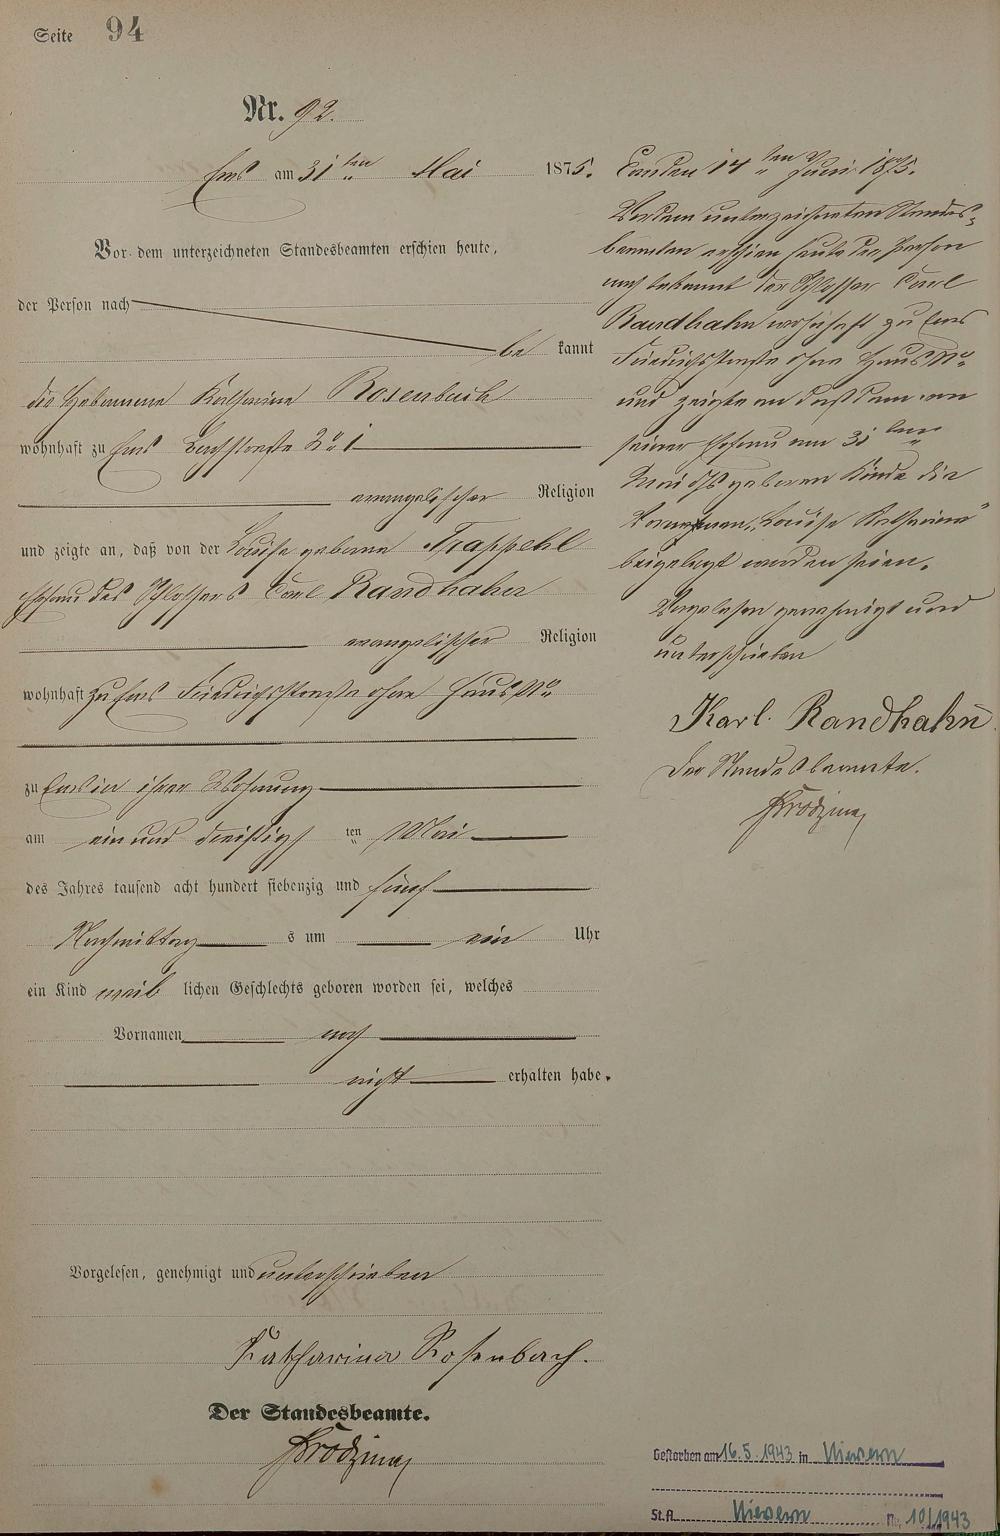 Seite 94
Nr. 92.
Ems am 31ten Mai 1875.
Vor dem unterzeichneten Standesbeamten erschien heute,
der Person nach
be kannt
die Hebamme Katharina Rosenbach
wohnhaft zu Ems Bachstraße No 1
evangelischer Religion
und zeigte an, daß von der Louise geborne Trappehl
Ehefrau des Schlossers Carl Randhahn
evangelischer Religion
wohnhaft zu Ems Friedrichsstraße ohne Haus No
zu Ems in ihrer Wohnung
am ein und dreißigs ten Mai
des Jahres tausend acht hundert siebenzig und fünf
Nachmittag s um ein Uhr
ein Kind weib lichen Geschlechts geboren worden sei, welches
Vornamen noch
nicht erhalten habe.
Vorgelesen, genehmigt und unterschrieben
Katharina Rosenbach.
Der Standesbeamte.
Ems den 14ten Juni 1875.
Vor dem unterzeichneten Standes-
beamten erschien heute der Person
nach bekannt der Schlosser Carl
Randhahn wohnhaft zu Ems
Friedrichsstraße ohne Haus No
und zeigte an daß dem von
seiner Ehefrau am 31ten
Mai geboren Kinde die
Vornamen "Louise Katharina"
beigelegt worden seien.
Vorgelesen genehmigt und
unterschrieben
Karl Randhahn
Der Standesbeamte.
Gestorben am 16.5.1943 in Nievern
St.A. Nievern Nr. 10/1943